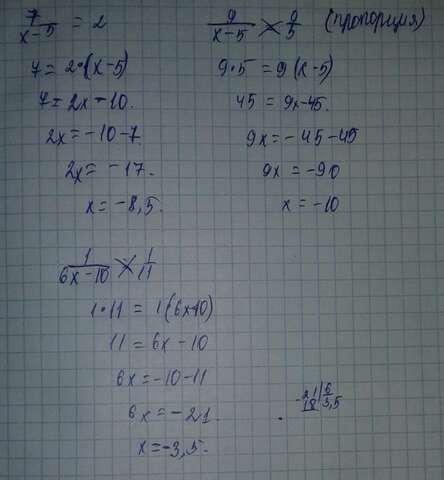 7/(x-5) = 2
7 = 2·(x-5)
7 = 2x-10.
2x = -10-7.
2x = -17.
x = -8,5.
9/(x-5) ⤫ 9/5 (пропорция)
9·5 = 9(x-5)
45 = 9x-45.
9x = -45-45
9x = -90
x = -10
1/(6x-10) ⤫ 1/11
1·11 = 1(6x-10)
11 = 6x-10
6x = -10-11
6x = -21.
x = -3,5.
-21|6
18|3,5